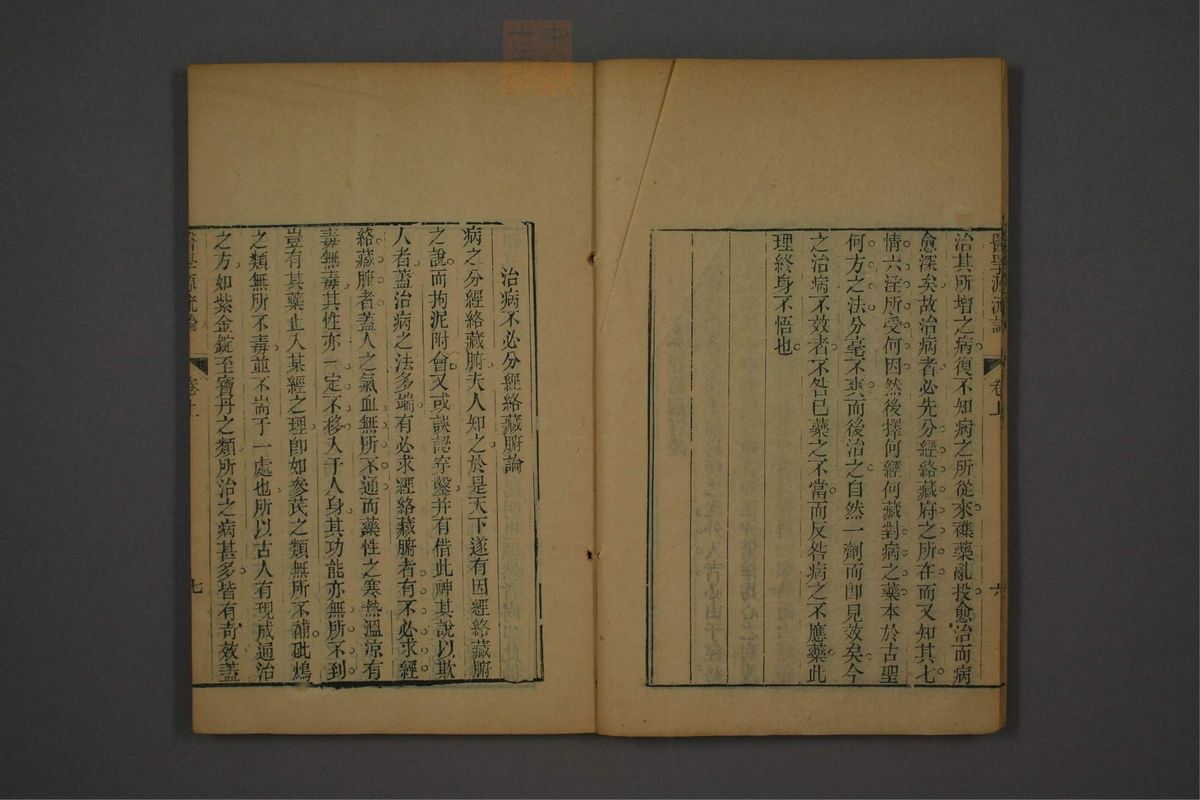 醫學源流論 卷上 六
治其所增之病復不知病之所從來雜藥亂投愈治而病
愈深矣故治病者必先分經絡藏府之所在而又知其七
情六淫所受何因然後擇何經何藏對病之藥本於古聖
何方之法分毫不爽而後治之自然一劑而卽見效矣今
之治病不效者不咎已藥之不當而反咎病之不應藥此
理終身不悟也
治病不必分經絡藏腑論
病之分經絡藏腑夫人知之於是天下遂有因經絡藏腑
之說而拘泥附會又或誤認穿鑿并有借此神其說以欺
人者葢治病之法多端有必求經絡藏腑者有不必求經
絡藏腑者葢人之氣血無所不通而藥性之寒熱溫涼有
毒無毒其性亦一定不移入于人身其功能亦無所不到
豈有某藥止入某經之理卽如參芪之類無所不補砒鴆
之類無所不毒並不耑于一處也所以古人有現成通治
之方如紫金錠至寶丹之類所治之病甚多皆有奇效葢
醫學源流論 卷上 七